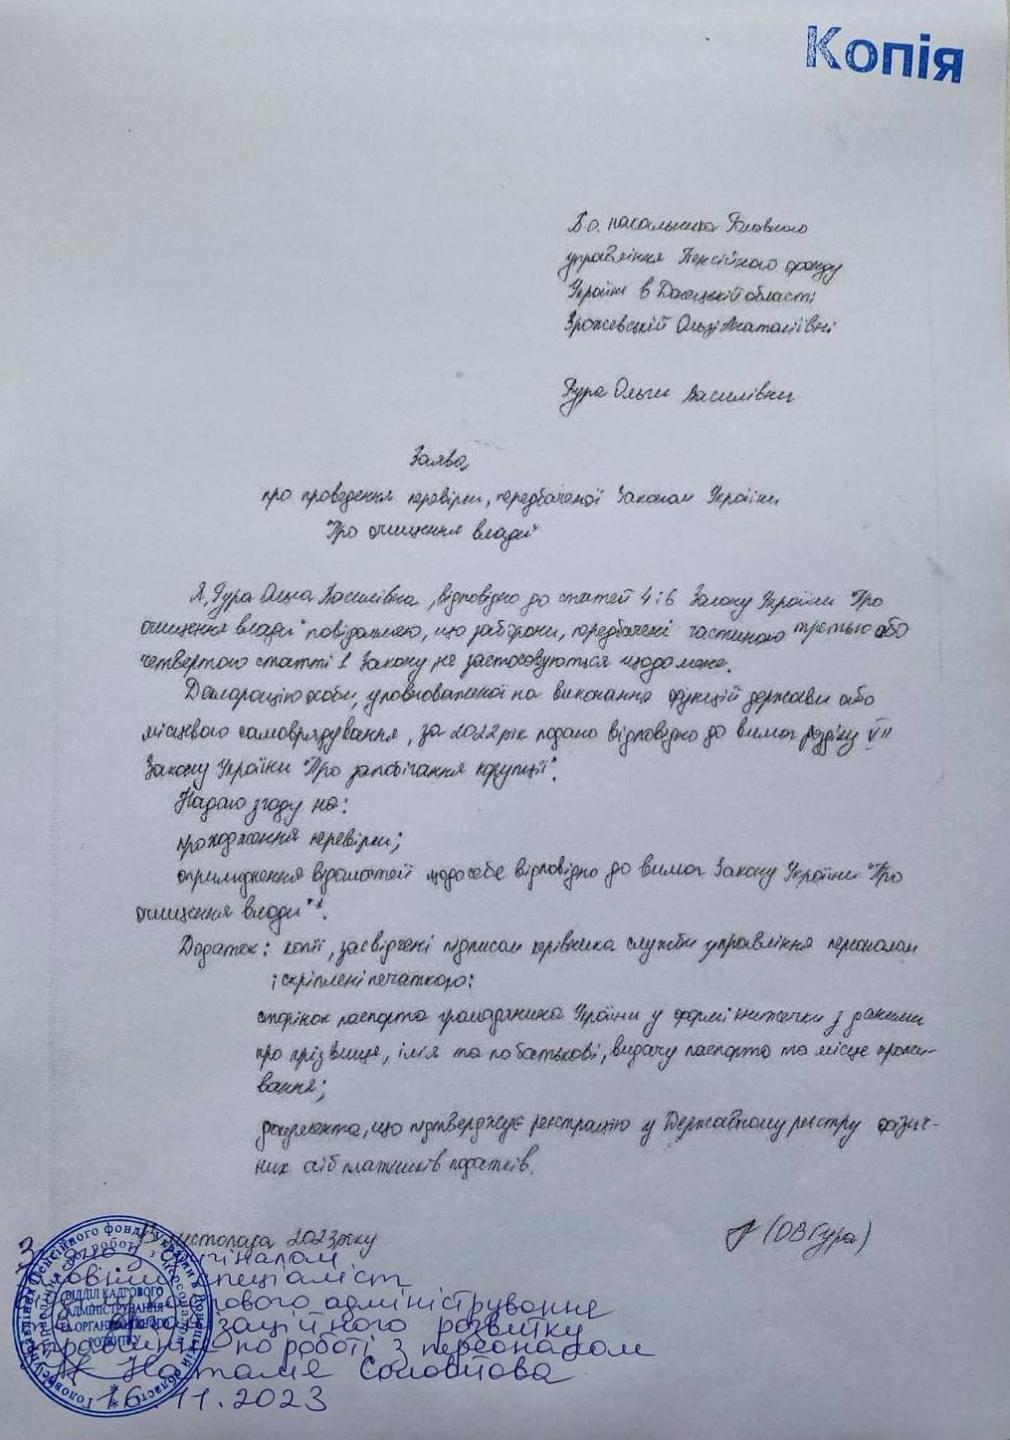 Копія
В.о. начальника Головного
управління Пенсійного фонду
України в Донецькій області
Зрожевській Ользі Анатоліївні
Гура Ольги Василівни
Заява
про проведення перевірки, передбаченої Законом України
"Про очищення влади"
Я, Гура Ольга Василівна, відповідно до статей 4 і 6 Закону України "Про
очищення влади" повідомляю, що заборони, передбачені частиною третьою або
четвертою статті 1 Закону, не застосовуються щодо мене.
Декларацію особи, уповноваженої на виконання функцій держави або
місцевого самоврядування, за 2022 рік подано відповідно до вимог розділу VII
Закону України "Про запобігання корупції".
Надаю згоду на:
проходження перевірки;
оприлюднення відомостей щодо себе відповідно до вимог Закону України "Про
очищення влади"¹.
Додаток: копії, засвідчені підписом керівника служби управління персоналом
і скріплені печаткою:
сторінок паспорта громадянина України у формі книжечки з даними
про прізвище, ім'я та по батькові, видачу паспорта та місце прожи-
вання;
документа, що підтверджує реєстрацію у Державному реєстрі фізич-
них осіб платників податків.
листопада 2023 року
(ОВ Гура)
З оригіналом
спеціаліст
адміністрування
організаційного розвитку
управління по роботі з персоналом
Наталія Соловйова
16.11.2023
ВІДДІЛ КАДРОВОГО
АДМІНІСТРУВАННЯ
ТА ОРГАНІЗАЦІЙНОГО
РОЗВИТКУ